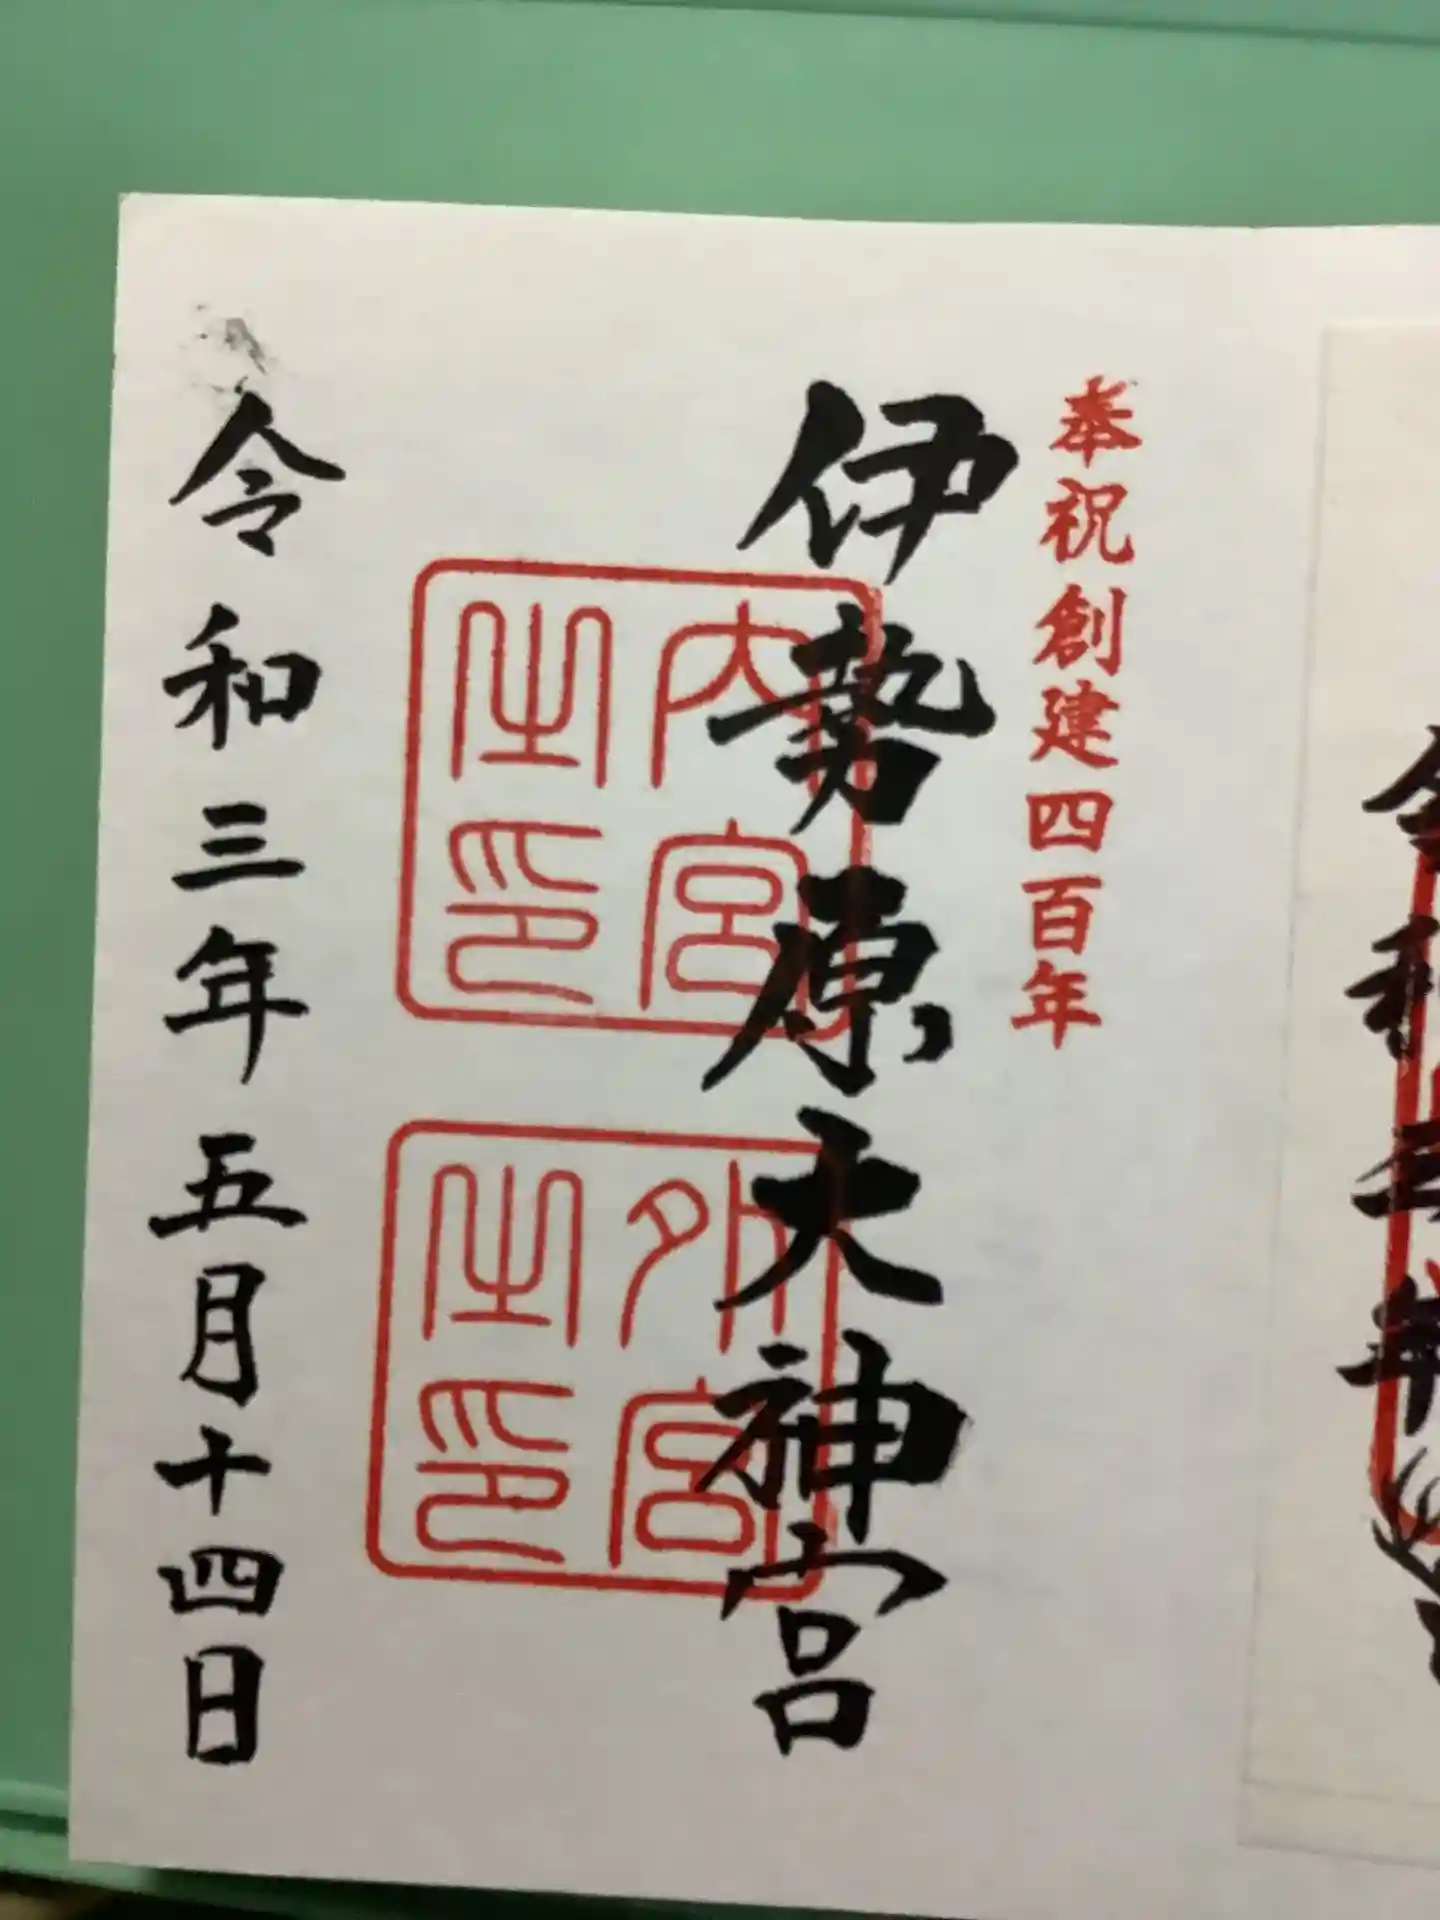 奉祝創建四百年
伊勢原大神宮
内宮之印
外宮之印
令和三年五月十四日